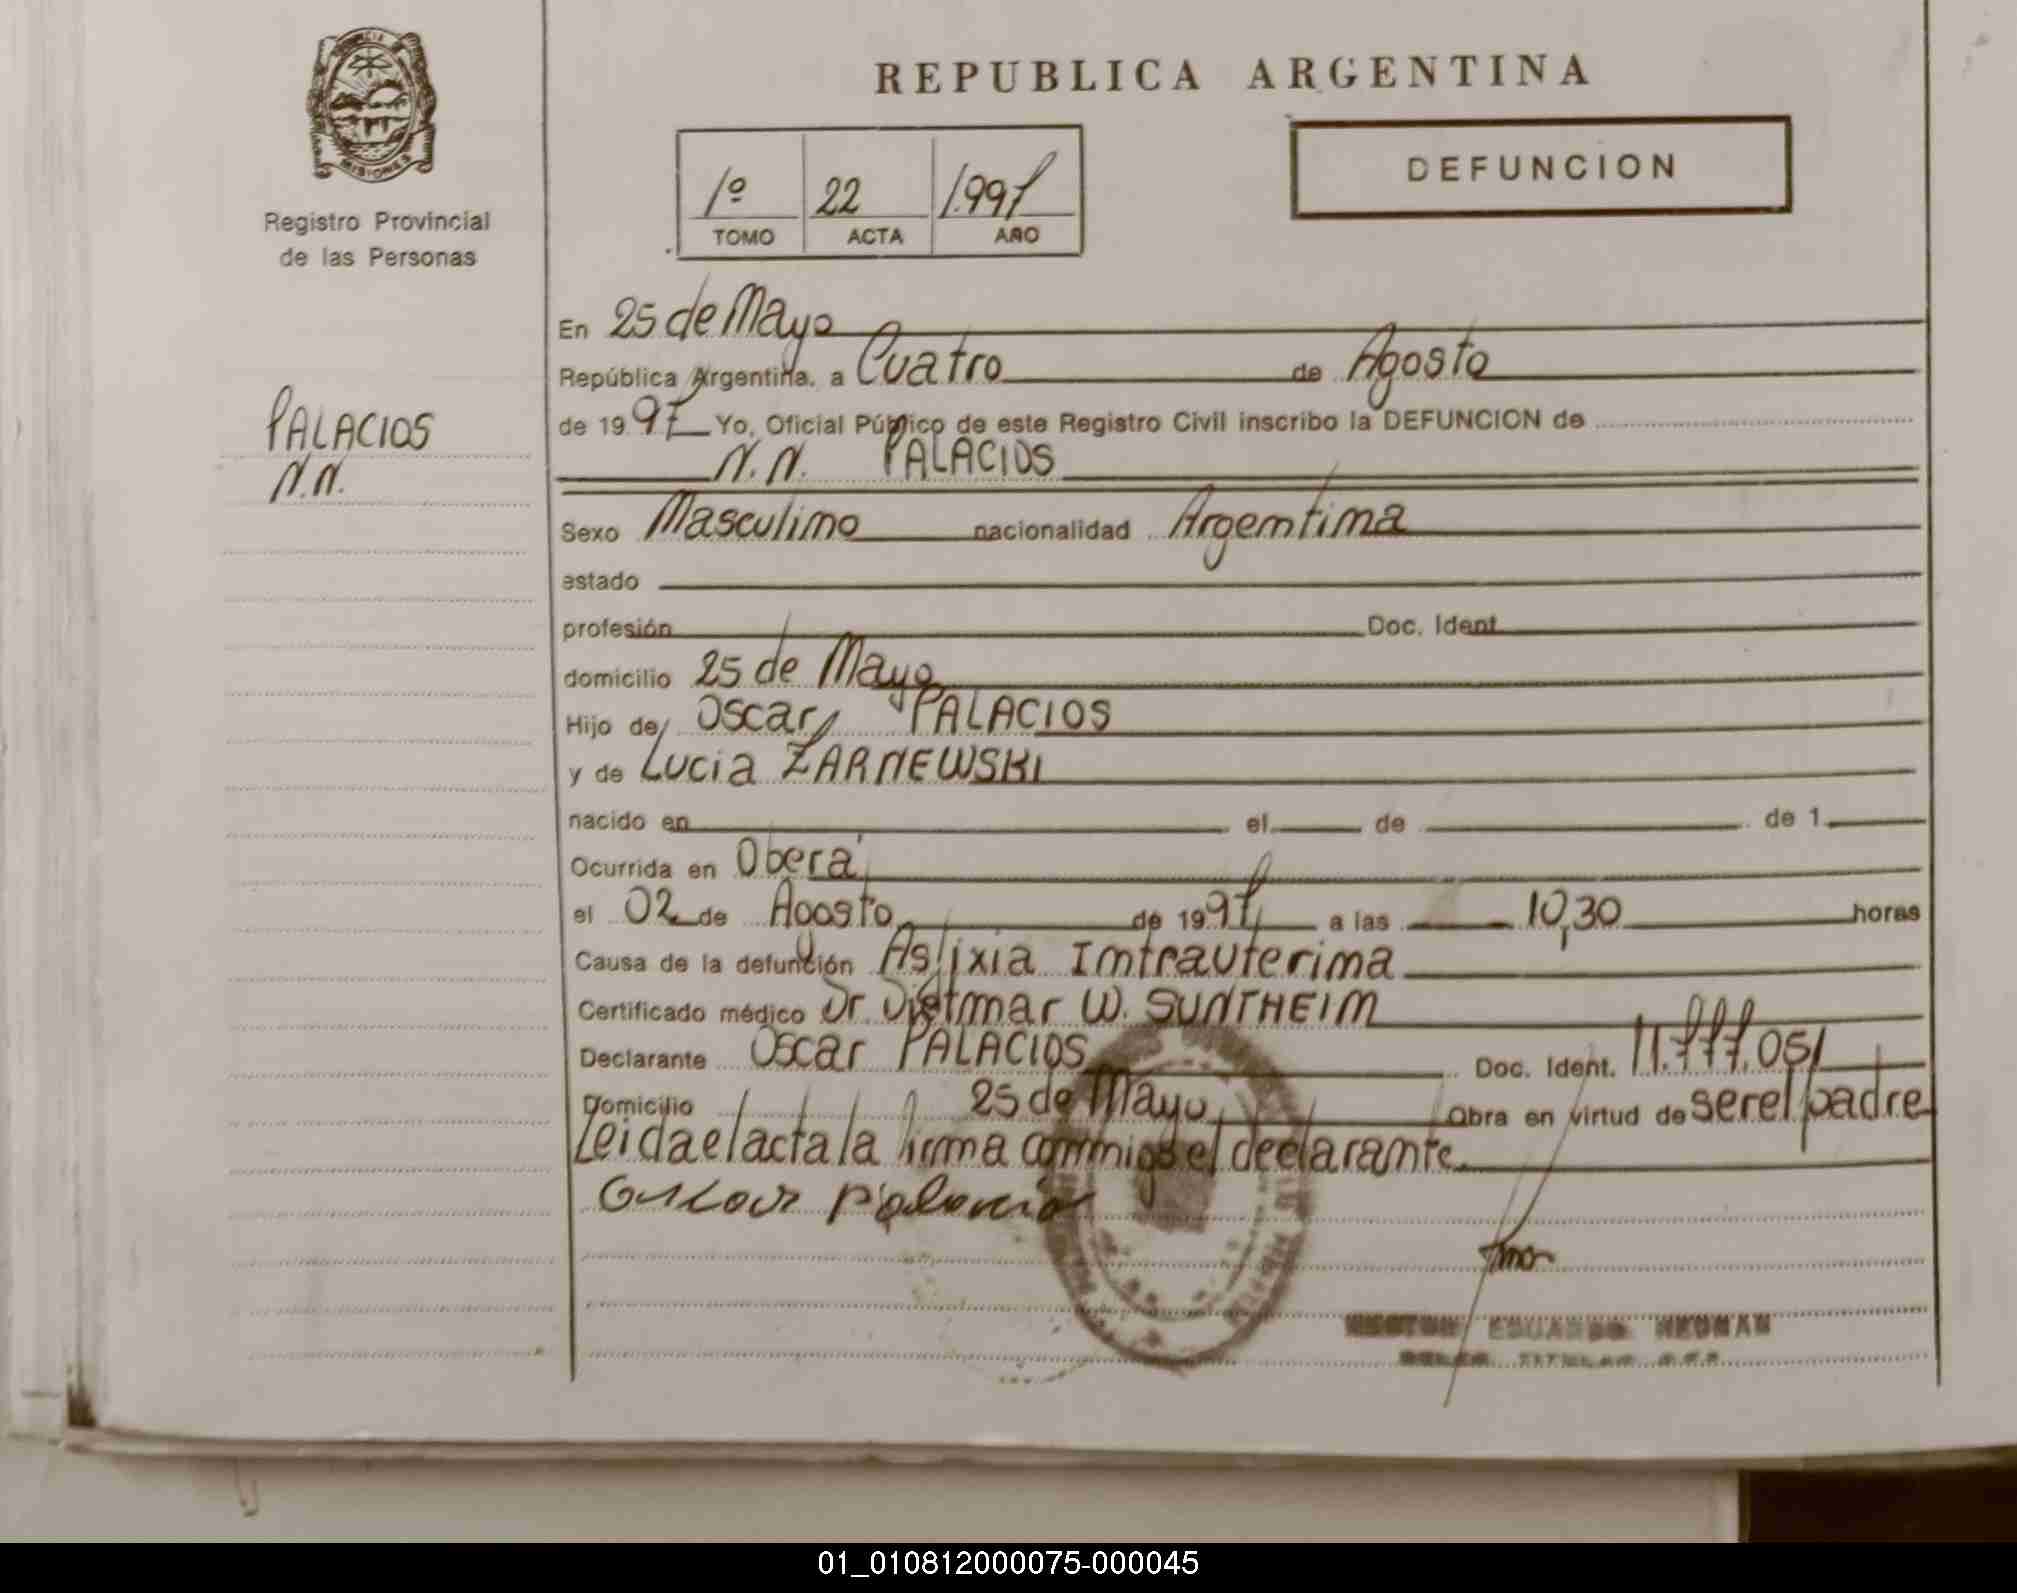 REPUBLICA ARGENTINA
DEFUNCION
1º 22 1.997
TOMO ACTA AÑO
MISIONES
Registro Provincial
de las Personas
PALACIOS
N.N.
En 25 de Mayo
República Argentina, a Cuatro de Agosto
de 1997 Yo, Oficial Público de este Registro Civil inscribo la DEFUNCION de
N.N. PALACIOS
Sexo Masculino nacionalidad Argentina
estado
profesión Doc. Ident.
domicilio 25 de Mayo
Hijo de Oscar PALACIOS
y de Lucia ZARNEWSKI
nacido en el de de 1
Ocurrida en Oberá
el 02 de Agosto de 1997 a las 10,30 horas
Causa de la defunción Asfixia Intrauterina
Certificado médico Dr. Dietmar W. SUNTHEIM
Declarante Oscar PALACIOS Doc. Ident. 11.777.051
Domicilio 25 de Mayo Obra en virtud de ser el padre
Leida el acta la firma conmigo el declarante
Oscar Palacios
EDUARDO
TITULAR
01_010812000075-000045